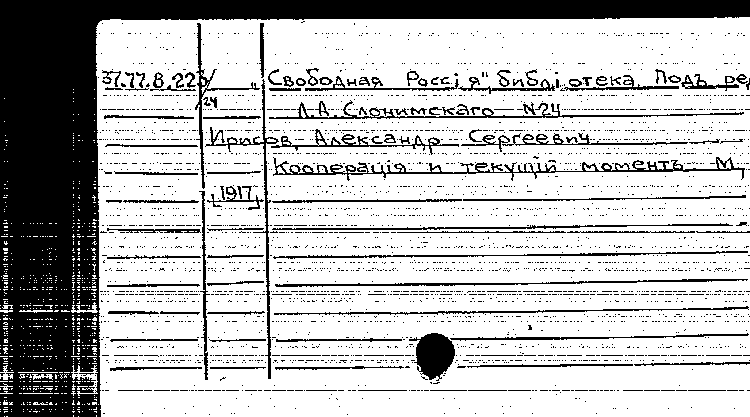 37.77.8.223/24 „Свободная Россія", библіотека. Подъ ред
Л.А. Слонимскаго N24
Ирисов, Александр Сергеевич
Кооперація и текущій моментъ. М,
[1917]